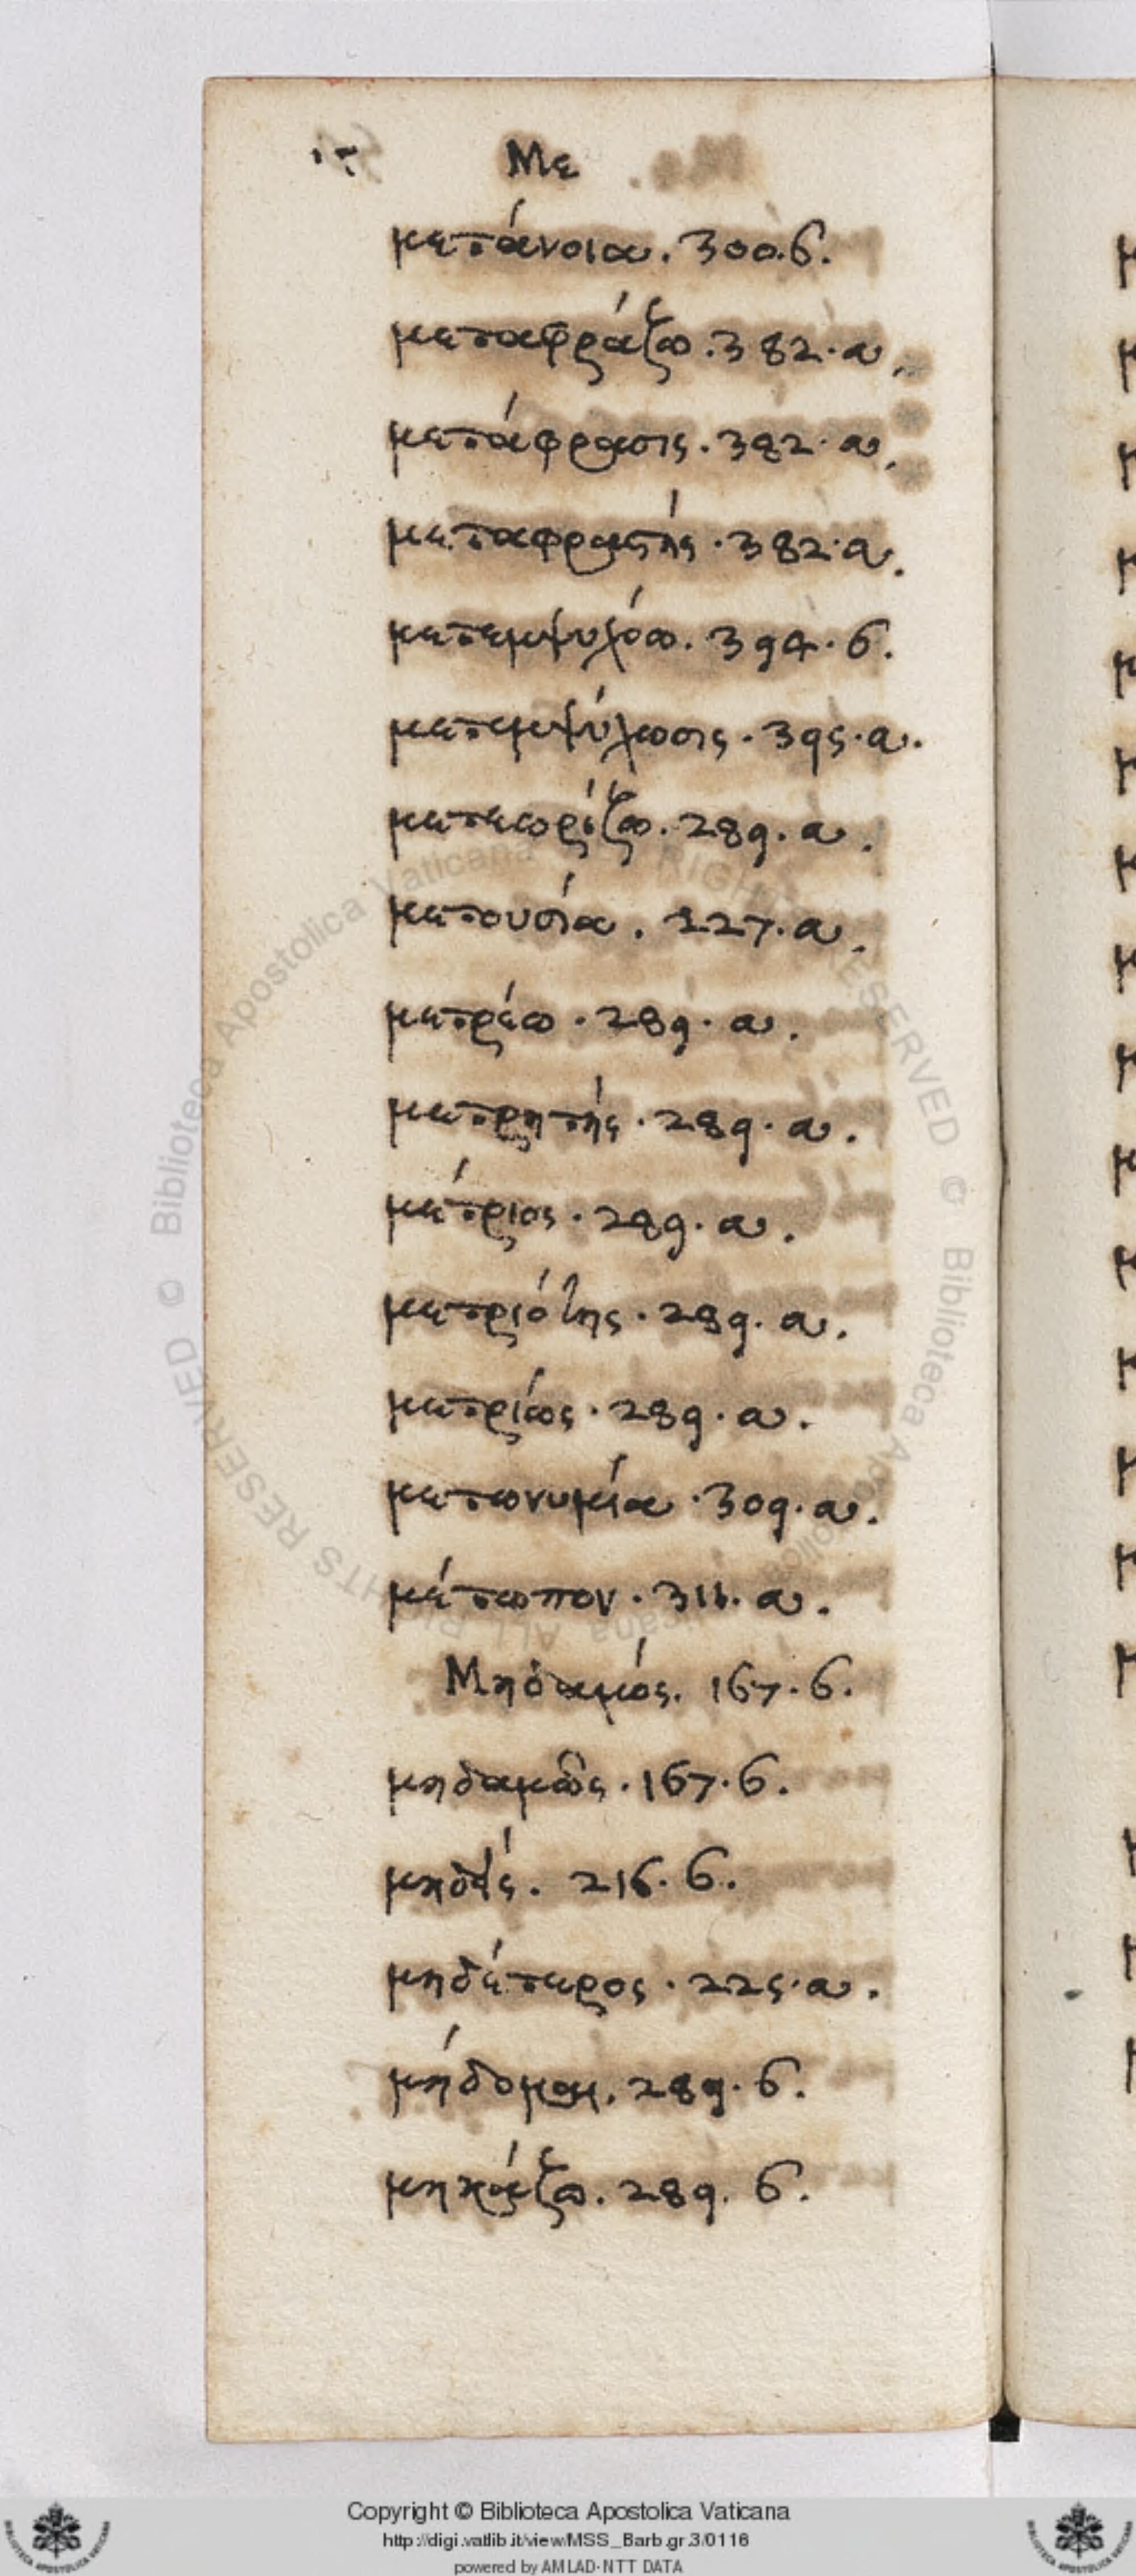 Με
μετάνοια. 300. б.
μεταφράζω. 382. α.
μετάφρασις. 382. α.
μεταφραστής. 382. α.
μετεμψυχόω. 394. б.
μετεμψύχωσις. 395. α.
μετεωρίζω. 289. α.
μετουσία. 227. α.
μετρέω. 289. α.
μετρητής. 289. α.
μέτριος. 289. α.
μετριότης. 289. α.
μετρίως. 289. α.
μετωνυμία. 309. α.
μέτωπον. 311. α.
Μηδαμός. 167. б.
μηδαμῶς. 167. б.
μηδείς. 216. б.
μηδέτερος. 225. α.
μήδομαι. 289. б.
289. б.
Copyright © Biblioteca Apostolica Vaticana
http://digi.vatlib.it/view/MSS_Barb.gr.3/0116
powered by AMLAD-NTT DATA